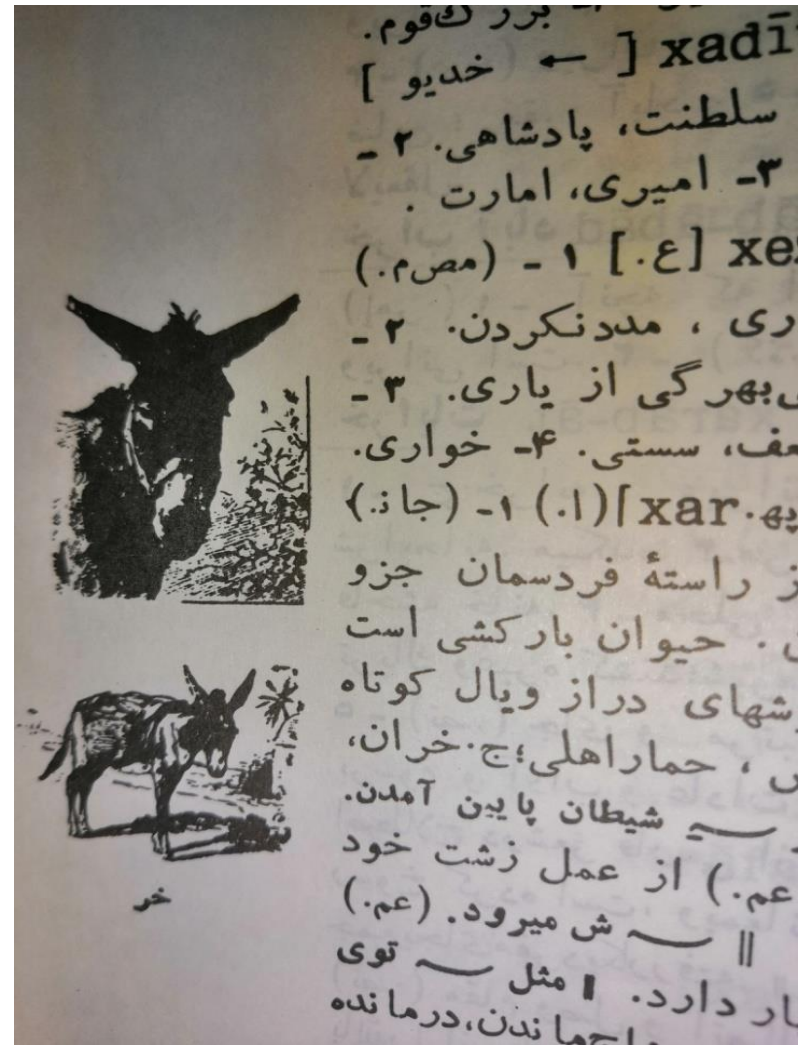 بزرگ قوم.
xadī [ ← خدیو ]
سلطنت، پادشاهی. ۲ -
۳- امیری، امارت .
xe [ع.] ۱ - (مص م.)
مددنکردن. ۲ -
بی‌بهرگی از یاری. ۳ -
سستی. ۴- خواری.
xar](ا.) ۱- (جا نـ.)
راستهٔ فردسمان جزو
. حیوان بارکشی است
دراز ویال کوتاه
، حماراهلی؛ج.خران،
ـــ شیطان پایین آمدن.
عم.) از عمل زشت خود
|| ـــ ش میرود. (عم.)
دارد. || مثل ـــ توی
درمانده
خر